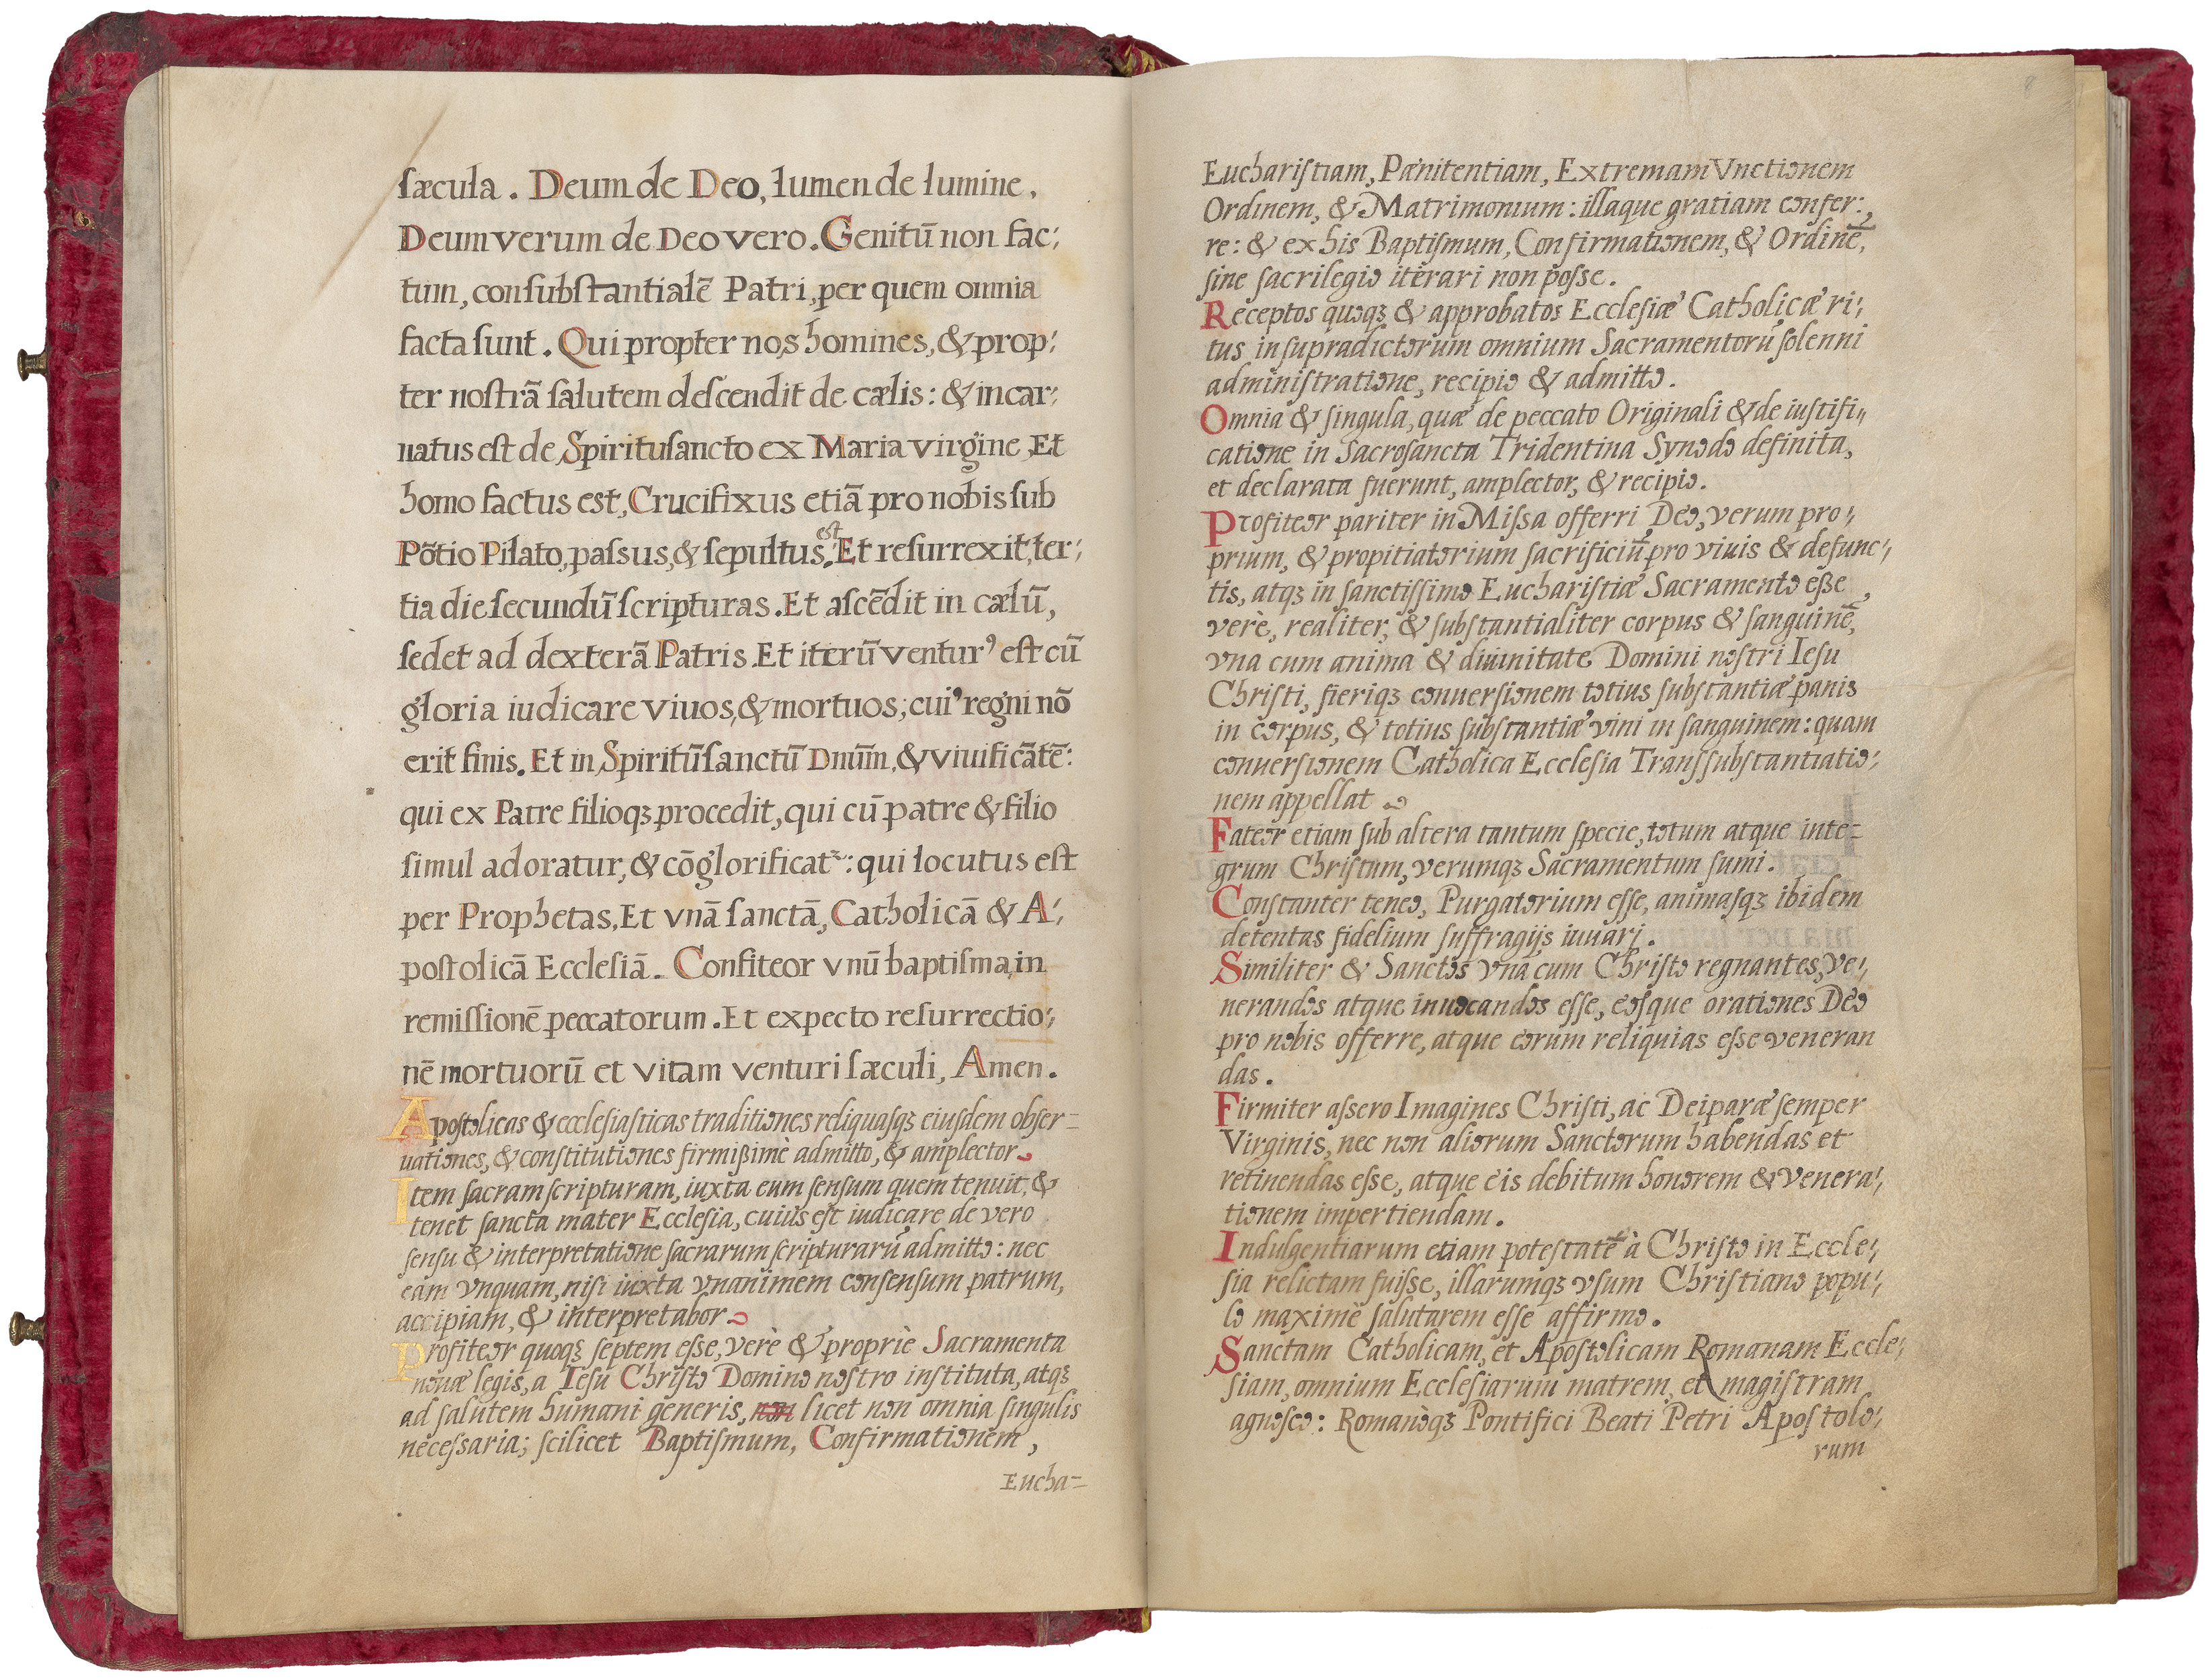 sæcula. Deum de Deo, lumen de lumine,
Deum verum de Deo vero. Genitū non fac⸗
tum, consubstantialē Patri, per quem omnia
facta sunt. Qui propter nos homines, & prop⸗
ter nostrā salutem descendit de cælis: & incar⸗
natus est de Spiritusancto ex Maria virgine, Et
homo factus est, Crucifixus etiā pro nobis sub
Pōtio Pilato, passus, & sepultus est. Et resurrexit, ter⸗
tia die secundū scripturas. Et ascēdit in cælū,
sedet ad dexterā Patris. Et iterū venturꝰ est cū
gloria iudicare viuos, & mortuos; cuiꝰ regni nō
erit finis. Et in Spiritūsanctū Dnūm, & viuificātē:
qui ex Patre filioqꝫ procedit, qui cū patre & filio
simul adoratur, & cōglorificatᷣ: qui locutus est
per Prophetas. Et vnā sanctā, Catholicā & A⸗
postolicā Ecclesiā. Confiteor vnū baptisma, in
remissionē peccatorum. Et expecto resurrectio⸗
nē mortuorū et vitam venturi sæculi, Amen.
Apostolicas & ecclesiasticas traditiones reliquasqꝫ eiusdem obser⸗
uationes, & constitutiones firmißimè admitto, & amplector
Item sacram scripturam, iuxta eum sensum quem tenuit, &
tenet sancta mater Ecclesia, cuiùs est iudicare de vero
sensu & interpretatione sacrarum scripturarū admitto: nec
eam vnquam, nisi iuxta vnanimem consensum patrum,
accipiam, & interpretabor
Profiteor quoqꝫ septem esse, verè & propriè Sacramenta
nouæ legis, a Iesu Christo Domino nostro instituta, atqꝫ
ad salutem humani generis, non licet non omnia singulis
necessaria; scilicet Baptismum, Confirmationem,
Eucha⸗
Eucharistiam, Pænitentiam, Extremam Vnctionem
Ordinem, & Matrimonium: illaque gratiam confer⸗
re: & ex his Baptismum, Confirmationem, & Ordinē,
sine sacrilegio iterari non posse.
Receptos quoqꝫ & approbatos Ecclesiæ Catholicæ ri⸗
tus in supradictorum omnium Sacramentorū solenni
administratione, recipio & admitto.
Omnia & singula, quæ de peccato Originali & de iustifi⸗
catione in Sacrosancta Tridentina Synodo definita,
et declarata fuerunt, amplector, & recipio.
Profiteor pariter in Missa offerri Deo, verum pro⸗
prium, & propitiatorium sacrificiū pro viuis & defunc⸗
tis, atqꝫ in sanctissimo Eucharistiæ Sacramento eße
verè, realiter, & substantialiter corpus & sanguinē,
vna cum anima & diuinitate Domini nostri Iesu
Christi, fieriqꝫ conuersionem totius substantiæ panis
in corpus, & totius substantiæ vini in sanguinem: quam
conuersionem Catholica Ecclesia Transsubstantiatio⸗
nem appellat
Fateor etiam sub altera tantum specie, totum atque inte⸗
grum Christum, verumqꝫ Sacramentum sumi.
Constanter teneo, Purgatorium esse, animasqꝫ ibidem
detentas fidelium suffragijs iuuari.
Similiter & Sanctos vnà cum Christo regnantes, ve⸗
nerandos atque inuocandos esse, eosque orationes Deo
pro nobis offerre, atque eorum reliquias esse veneran
das.
Firmiter assero Imagines Christi, ac Deiparæ semper
Virginis, nec non aliorum Sanctorum habendas et
retinendas esse, atque eis debitum honorem & venera⸗
tionem impertiendam.
Indulgentiarum etiam potestatē à Christo in Eccle⸗
sia relictam fuisse, illarumqꝫ vsum Christiano popu⸗
lo maximè salutarem esse affirmo.
Sanctam Catholicam, et Apostolicam Romanam Eccle⸗
siam, omnium Ecclesiarum matrem, et magistram
agnosco: Romanoqꝫ Pontifici Beati Petri Apostolo⸗
rum